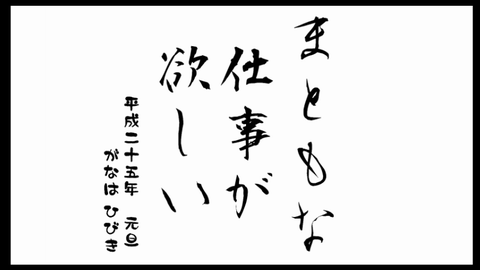 まともな
仕事が
欲しい
平成二十五年 元旦
がなは ひびき